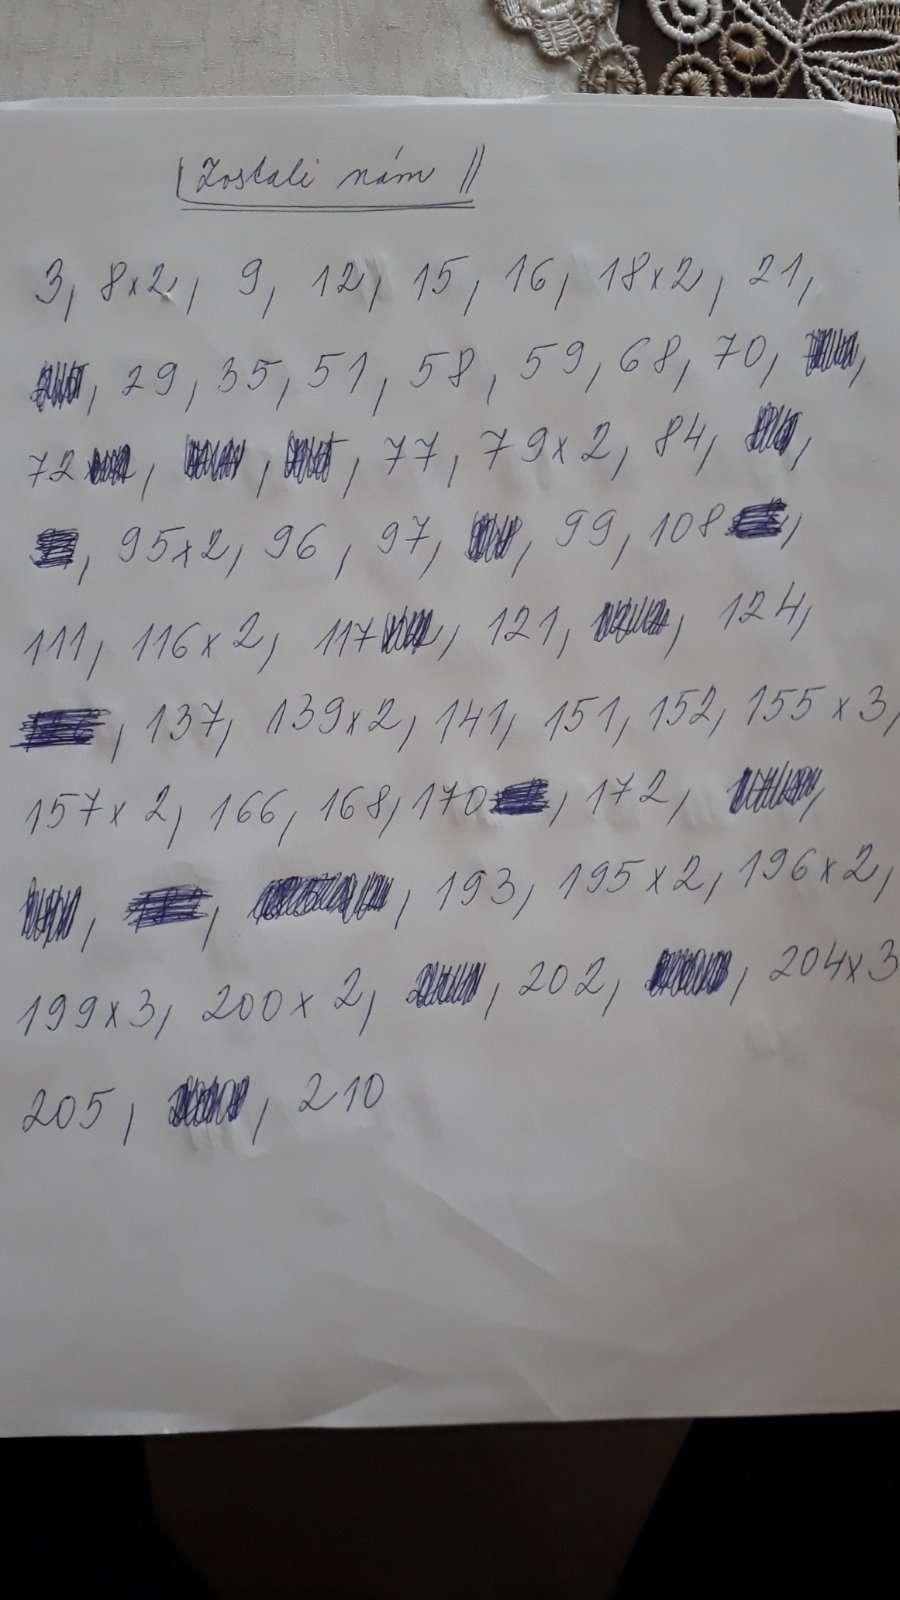 Zostali nám
3, 8x2, 9, 12, 15, 16, 18x2, 21,
, 29, 35, 51, 58, 59, 68, 70, ,
72 , , , 77, 79x2, 84, ,
, 95x2, 96, 97, , 99, 108 ,
111, 116x2, 117 , 121, , 124,
, 137, 139x2, 141, 151, 152, 155x3,
157x2, 166, 168, 170 , 172, ,
, , , 193, 195x2, 196x2,
199x3, 200x2, , 202, , 204x3
205, , 210